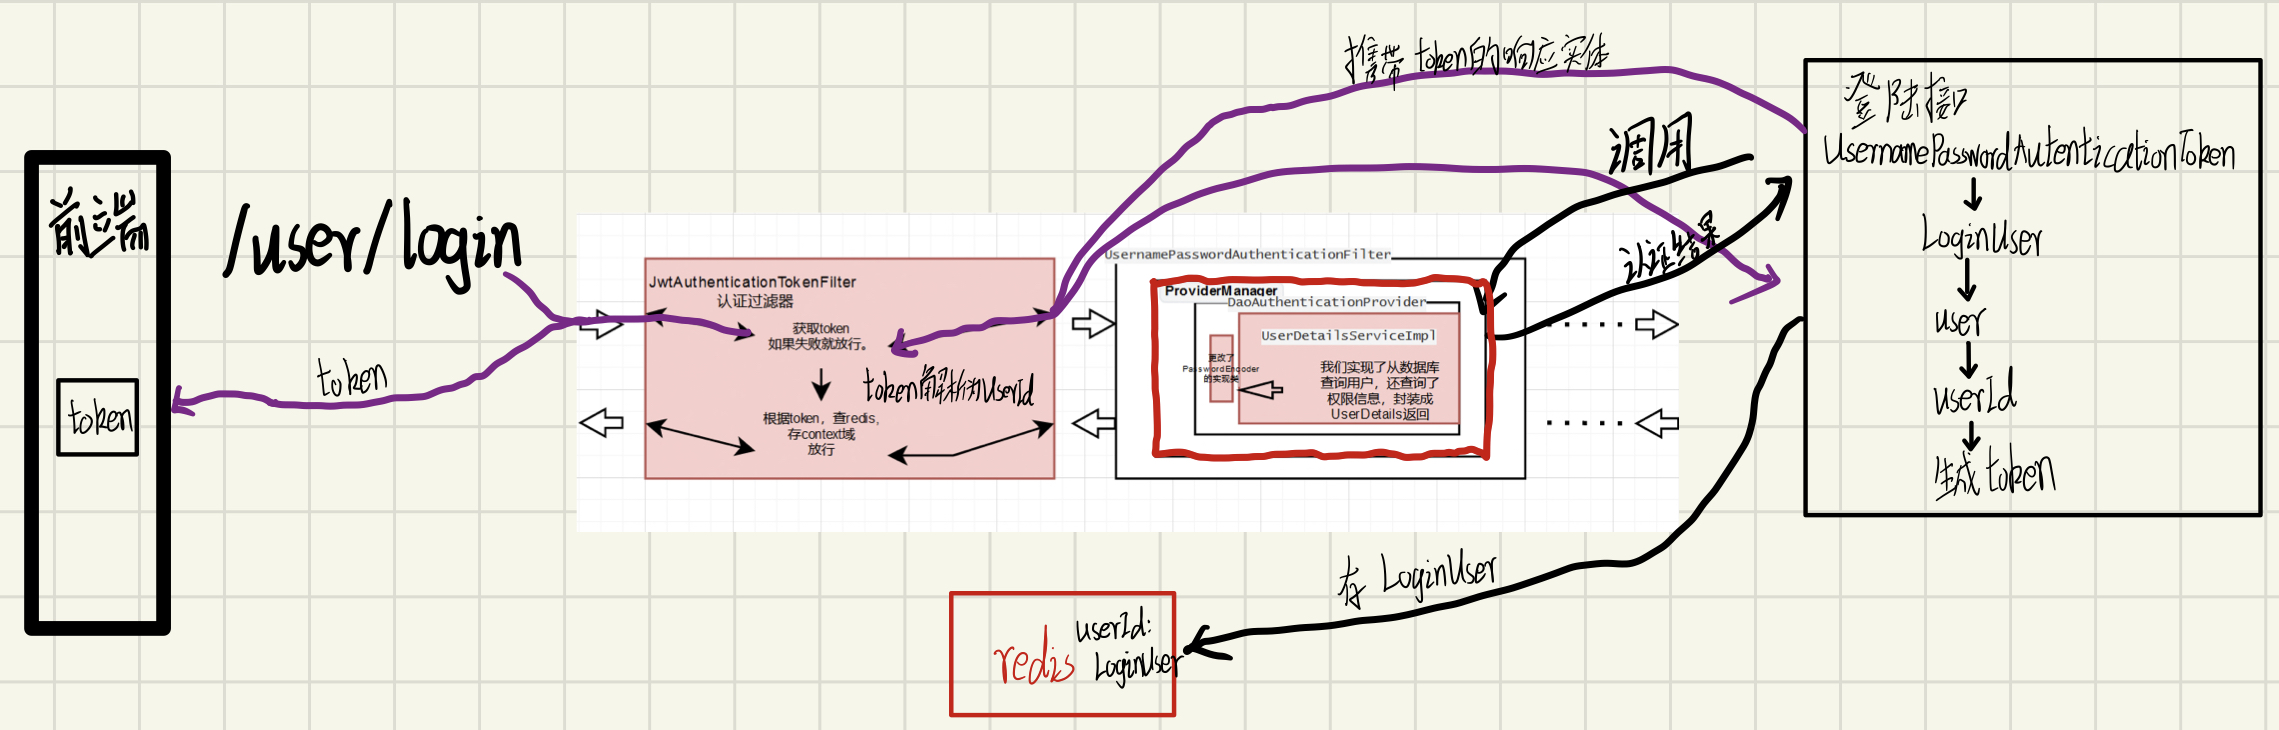 前端
token
/user/login
token
JwtAuthenticationTokenFilter
认证过滤器
获取token
如果失败就放行。
token解析为UserId
根据token，查redis，
存context域
放行
UsernamePasswordAuthenticationFilter
ProviderManager
DaoAuthenticationProvider
UserDetailsServiceImpl
更改了
PasswordEncoder
的实现类
我们实现了从数据库
查询用户，还查询了
权限信息，封装成
UserDetails返回
携带token的响应实体
调用
认证结果
登陆接口
UsernamePasswordAutenticationToken
LoginUser
user
userId
生成token
存 LoginUser
redis
userId:
LoginUser